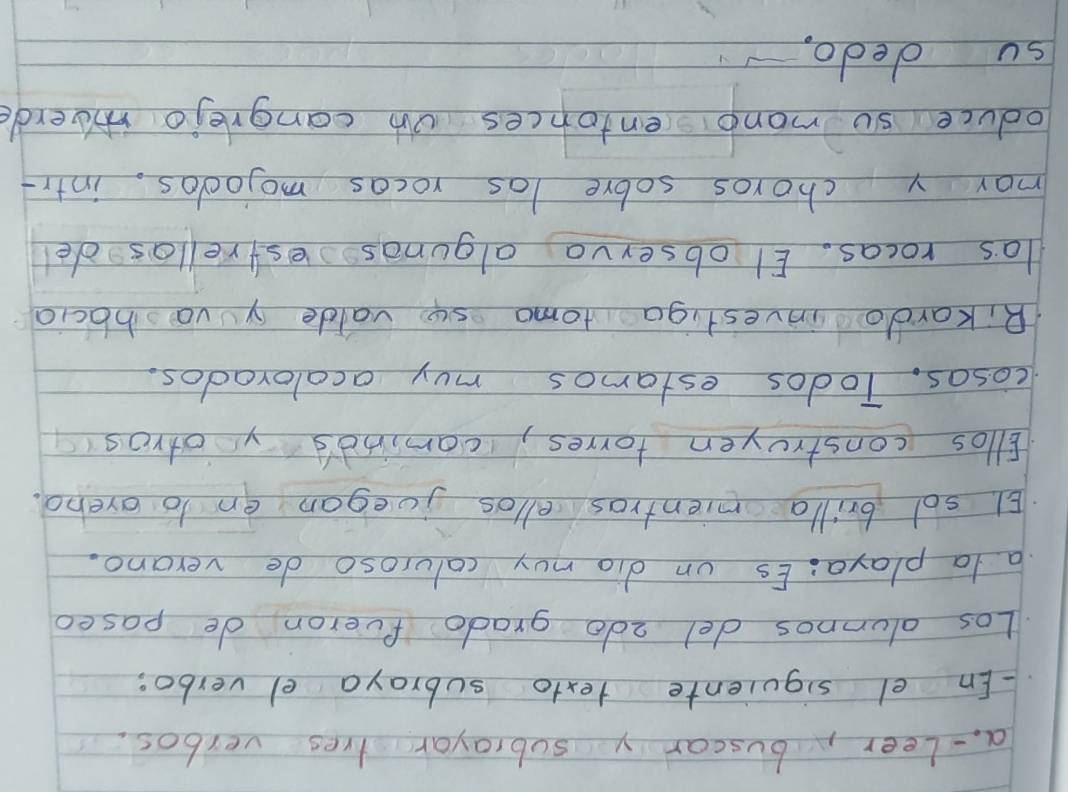 a.- Leer, buscar y subrayar tres verbos.
-En el siguiente texto subraya el verbo:
Los alumnos del 2do grado fueron de paseo
a la playa: Es un dia muy caluroso de verano.
El sol brilla mientras ellos juegan en la arena.
Ellos construyen torres, caminos y otras
cosas. Todos estamos muy acalorados.
Rikardo investiga toma su valde y va hacia
las rocas. El observa algunas estrellas de
mar y choros sobre las rocas mojadas. intr-
oduce su mano entonces un cangrejo muerde
su dedo.